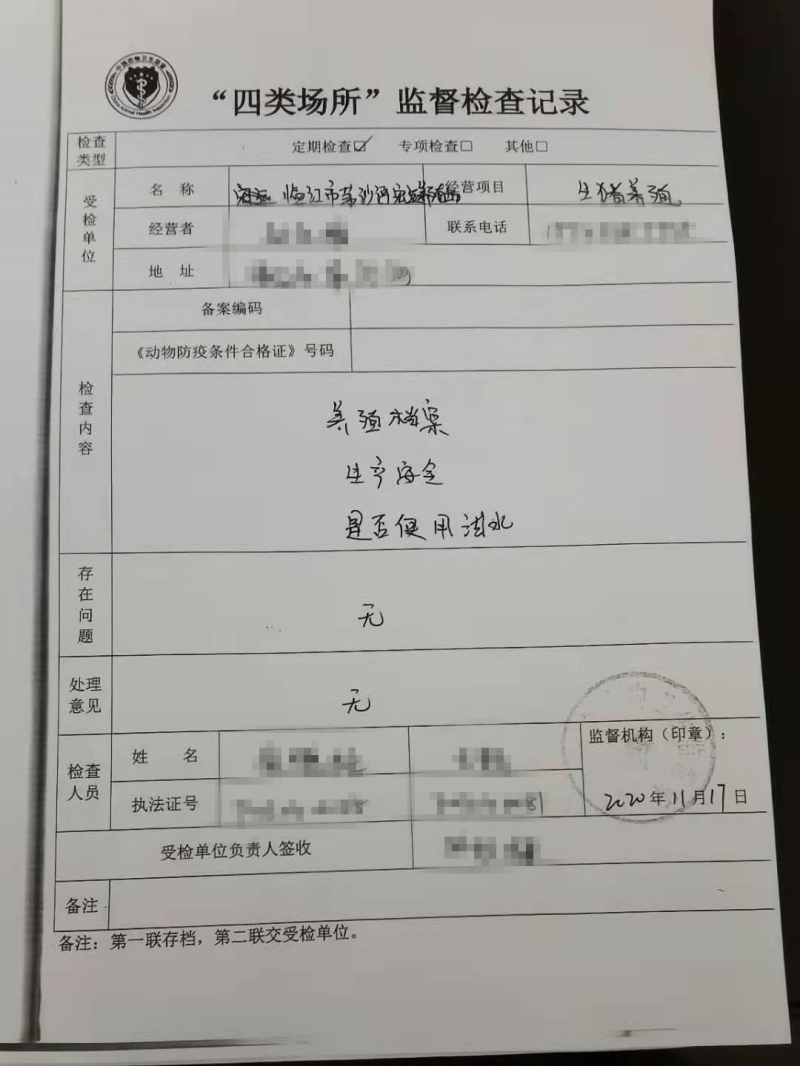 “四类场所”监督检查记录
检查类型 定期检查☑ 专项检查□ 其他□
受检单位
名 称 临江市 经营项目 生猪养殖
经营者 联系电话
地 址
检查内容
备案编码
《动物防疫条件合格证》号码
养殖档案
生产安全
是否使用洪水
存在问题 无
处理意见 无
检查人员
姓 名
执法证号
监督机构（印章）：
2020年11月17日
受检单位负责人签收
备注
备注：第一联存档，第二联交受检单位。